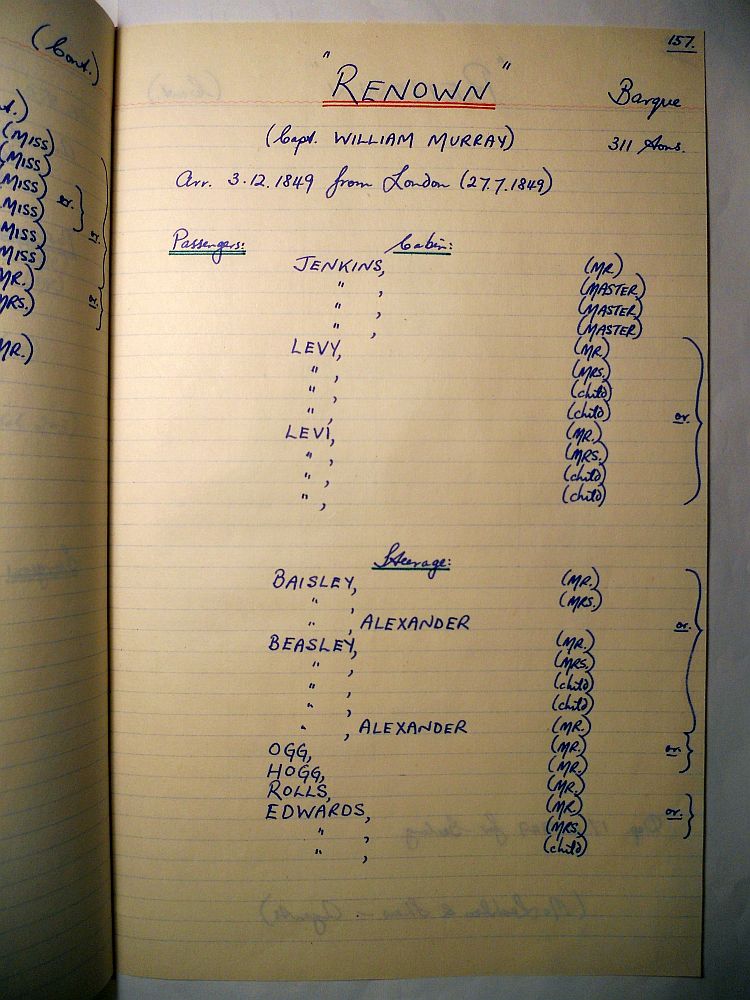 (Cont.)
(MISS)
(MISS)
MISS)
MISS)
MISS)
MISS)
MR.)
MRS.)
MR.)
or.
or.
or.
157.
"RENOWN"
Barque
(Capt. WILLIAM MURRAY)
311 tons.
Arr. 3.12.1849 from London (27.7.1849)
Passengers: Cabin:
JENKINS, (MR)
" , (MASTER)
" , (MASTER)
" , (MASTER)
LEVY, (MR.
" , (MRS.
" , (child)
" , (child) or.
LEVI, (MR.)
" , (MRS.
" , (child)
" , (child)
Steerage:
BAISLEY, (MR.)
" , (MRS.)
" , ALEXANDER or.
BEASLEY, (MR.)
" , (MRS.
" , (child)
" , (child)
" , ALEXANDER (MR.)
OGG, (MR.) or.
HOGG, (MR.
ROLLS, (MR.
EDWARDS, (MR. or.
" , (MRS)
" , (child)